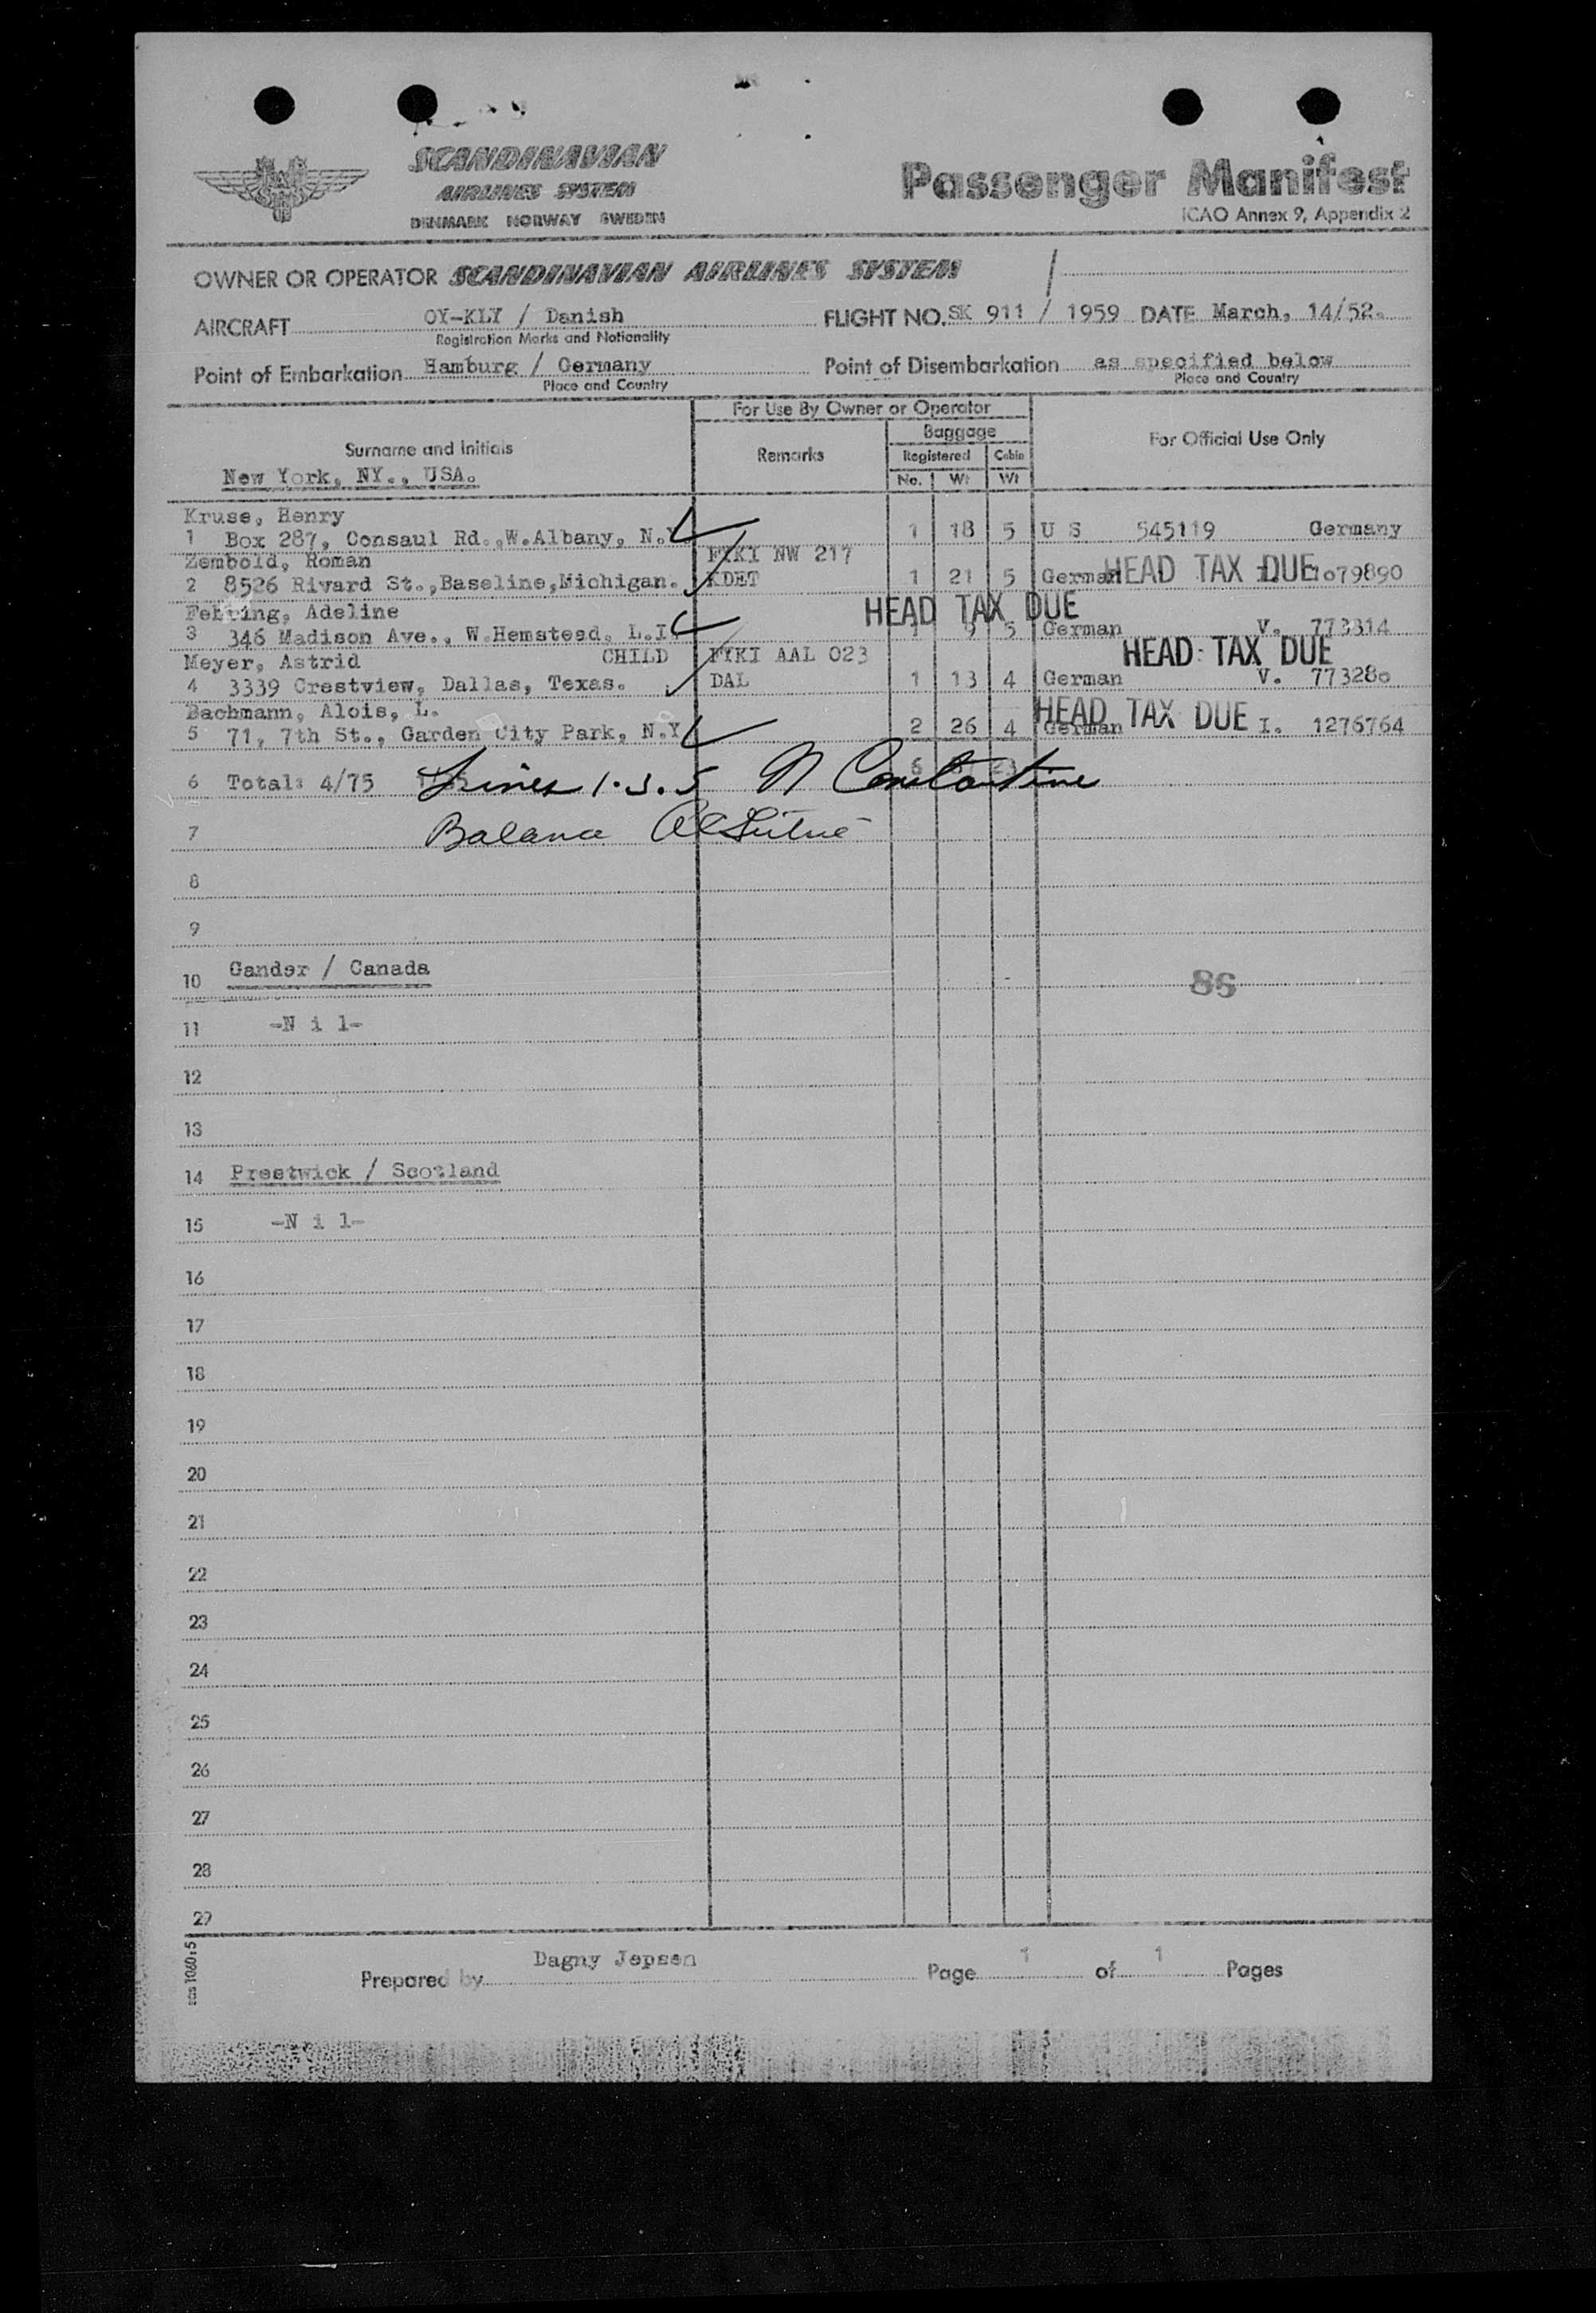 SCANDINAVIAN
AIRLINES SYSTEM
DENMARK NORWAY SWEDEN
Passenger Manifest
ICAO Annex 9, Appendix 2
OWNER OR OPERATOR SCANDINAVIAN AIRLINES SYSTEM
AIRCRAFT OY-KLY / Danish FLIGHT NO. SK 911 / 1959 DATE March, 14/52.
Registration Marks and Nationality
Point of Embarkation Hamburg / Germany Point of Disembarkation as specified below
Place and Country Place and Country
For Use By Owner or Operator
Surname and Initials Remarks Baggage For Official Use Only
Registered Cabin
New York, NY., USA. No. Wt Wt
Kruse, Henry
1 Box 287, Consaul Rd.,W.Albany, N.Y. 1 18 5 U S 545119 Germany
Zembold, Roman FYKI NW 217
2 8526 Rivard St.,Baseline,Michigan. KDET 1 21 5 German HEAD TAX DUE 1079890
Fehring, Adeline HEAD TAX DUE
3 346 Madison Ave., W.Hemstead, L.I. 1 9 5 German V. 773314
Meyer, Astrid CHILD FYKI AAL 023 HEAD TAX DUE
4 3339 Crestview, Dallas, Texas. DAL 1 13 4 German V. 773280
Bachmann, Alois, L. HEAD TAX DUE
5 71, 7th St., Garden City Park, N.Y. 2 26 4 German I. 1276764
6 Total: 4/75 Lines 1.3.5 N Constantine
7 Balance
8
9
10 Gander / Canada 86
11 -N i l-
12
13
14 Prestwick / Scotland
15 -N i l-
16
17
18
19
20
21
22
23
24
25
26
27
28
29
sas 1060:5
Prepared by Dagny Jepsen Page 1 of 1 Pages